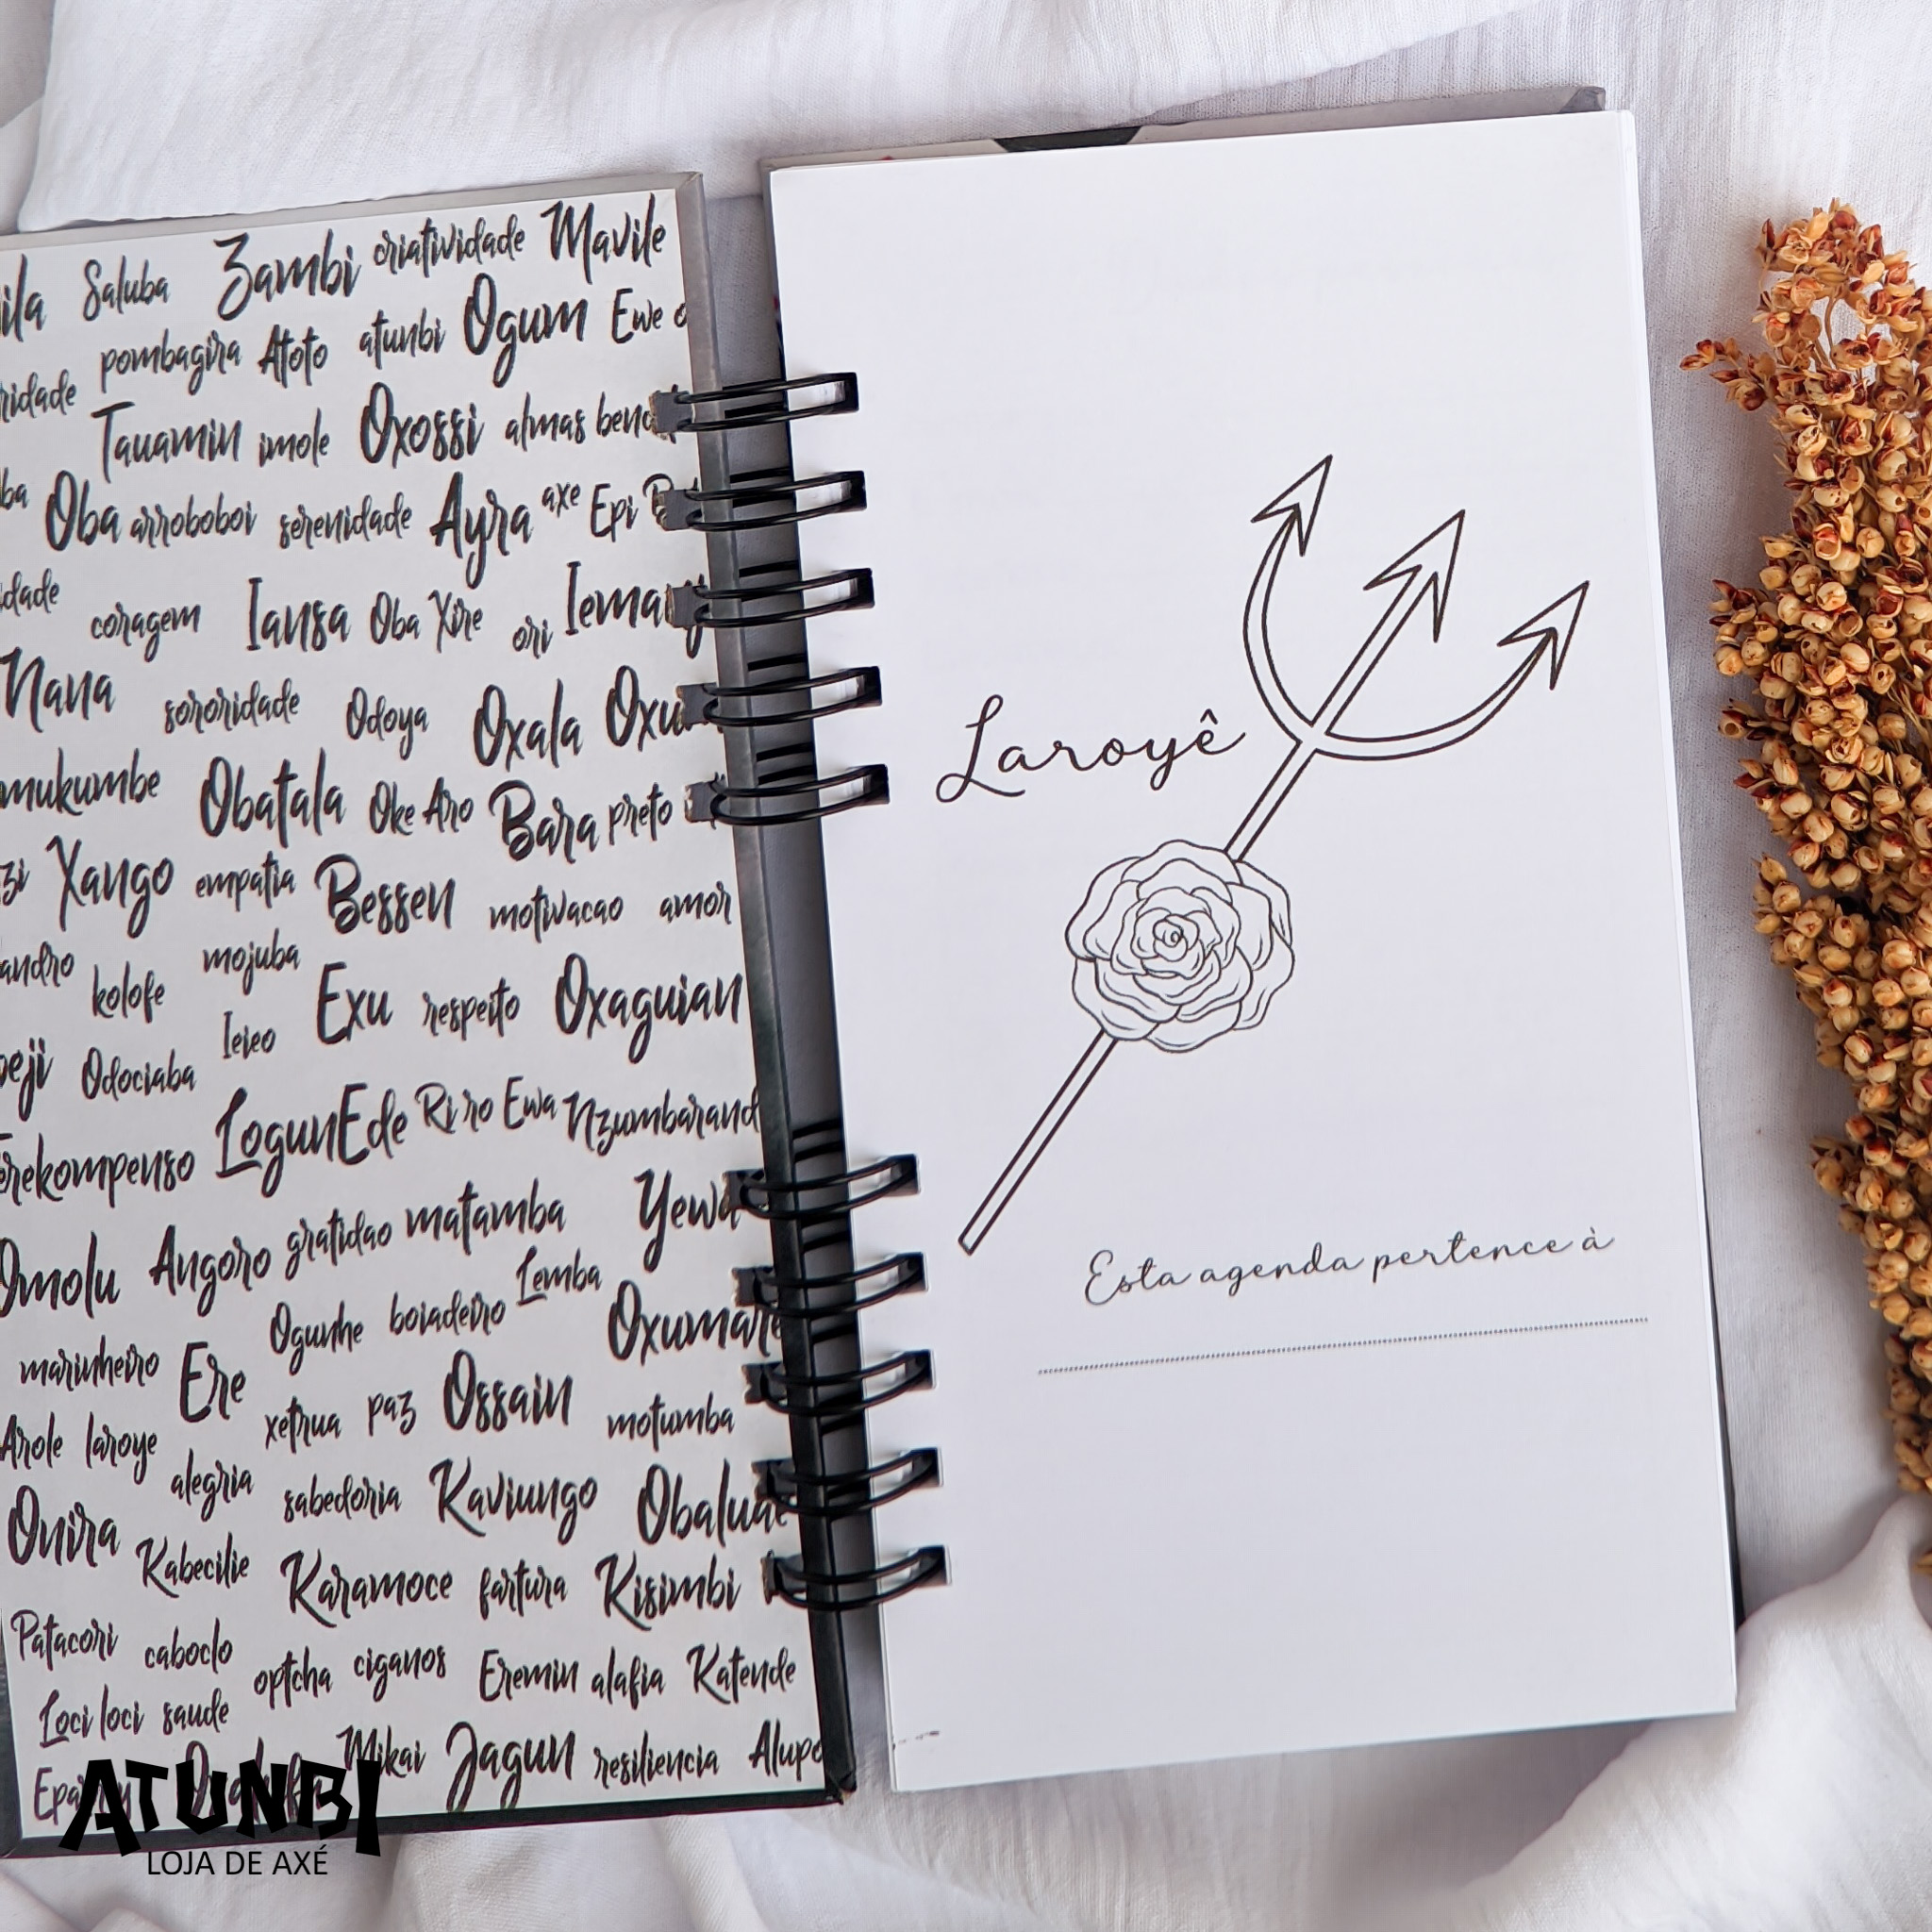 Saluba Zambi criatividade Mavile
pombagira Atoto atunbi Ogum Ewe
Tauamin imole Oxossi almas
Oba arroboboi serenidade Ayra axe Epi
coragem Iansa Oba Xire ori
Nana sororidade Odoya Oxala
mukumbe Obatala Oke Aro Bara preto
Xango empatia Bessen motivacao amor
kolofe mojuba Exu respeito Oxaguian
Odociaba Ieieo
LogunEde Ri ro Ewa
Angoro gratidao matamba
marinheiro Ere Ogunhe boiadeiro Lemba
xetrua paz Ossain motumba
Arole laroye alegria sabedoria Kaviungo
Onira Kabecilie Karamoce fartura Kisimbi
Patacori caboclo optcha ciganos Eremin alafia Katende
Loci loci saude
Mikai Jagun resiliencia
Laroyê
Esta agenda pertence à
ATUNBI
LOJA DE AXÉ